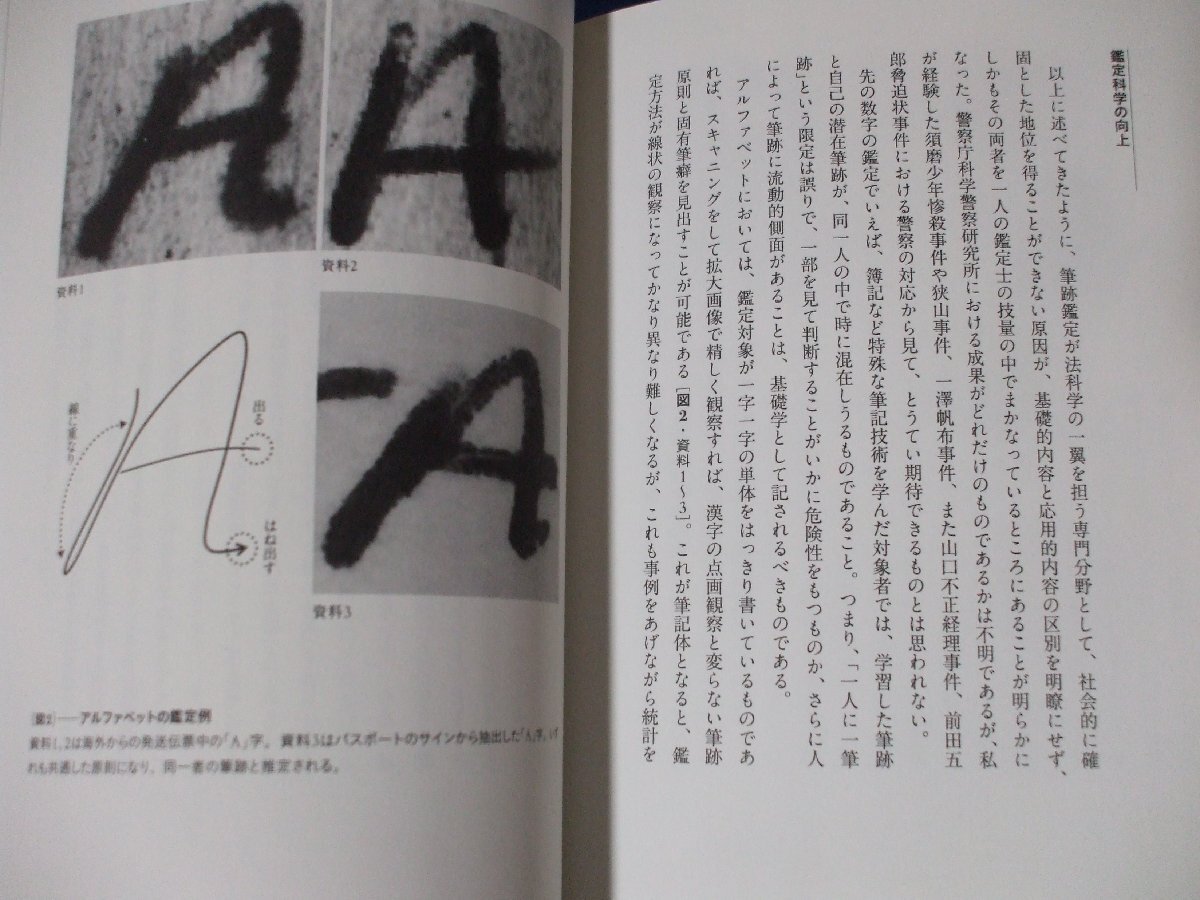 鑑定科学の向上
以上に述べてきたように、筆跡鑑定が法科学の一翼を担う専門分野として、社会的に確
固とした地位を得ることができない原因が、基礎的内容と応用的内容の区別を明瞭にせず、
しかもその両者を一人の鑑定士の技量の中でまかなっているところにあることが明らかに
なった。警察庁科学警察研究所における成果がどれだけのものであるかは不明であるが、私
が経験した須磨少年惨殺事件や狭山事件、一澤帆布事件、また山口不正経理事件、前田五
郎脅迫状事件における警察の対応から見て、とうてい期待できるものとは思われない。
先の数字の鑑定でいえば、簿記など特殊な筆記技術を学んだ対象者では、学習した筆跡
と自己の潜在筆跡が、同一人の中で時に混在しうるものであること。つまり、「一人に一筆
跡」という限定は誤りで、一部を見て判断することがいかに危険性をもつものか、さらに人
によって筆跡に流動的側面があることは、基礎学として記されるべきものである。
アルファベットにおいては、鑑定対象が一字一字の単体をはっきり書いているものであ
れば、スキャニングをして拡大画像で精しく観察すれば、漢字の点画観察と変らない筆跡
原則と固有筆癖を見出すことが可能である[図2・資料1～3]。これが筆記体となると、鑑
定方法が線状の観察になってかなり異なり難しくなるが、これも事例をあげながら統計を
A
資料1
A
資料2
A
出る
はね出す
線に重なり
A
資料3
[図2]——アルファベットの鑑定例
資料1,2は海外からの発送伝票中の「A」字。資料3はパスポートのサインから抽出した「A」字。いず
れも共通した原則になり、同一者の筆跡と推定される。